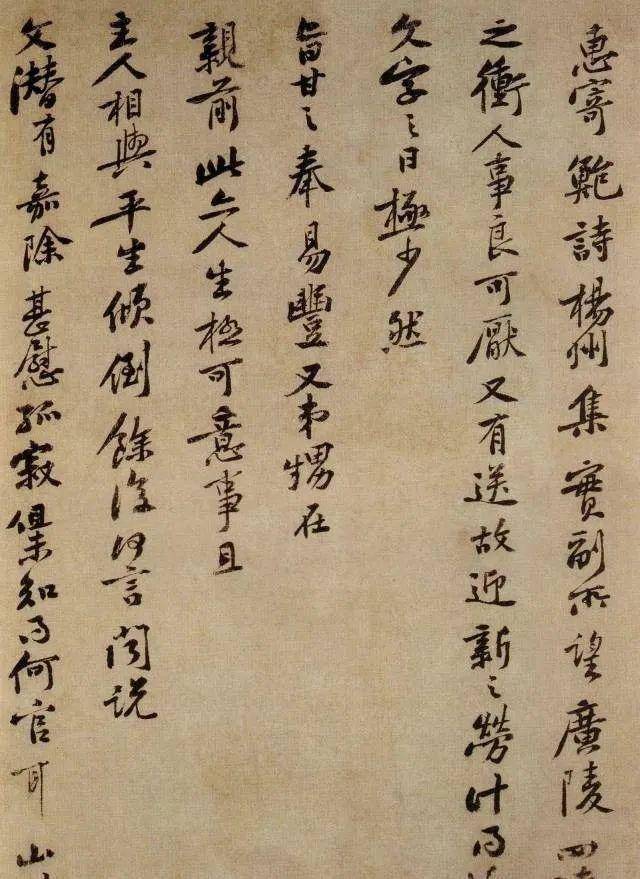 惠寄鮑詩楊州集實副所望廣陵四
之衝人事良可厭又有送故迎新之勞計得
文字之日極少然
旨甘之奉易豐又弟甥在
親前此亦人生極可意事且
主人相與平生傾倒餘復何言聞說
文潛有嘉除甚慰孤寂但未知得何官耳山